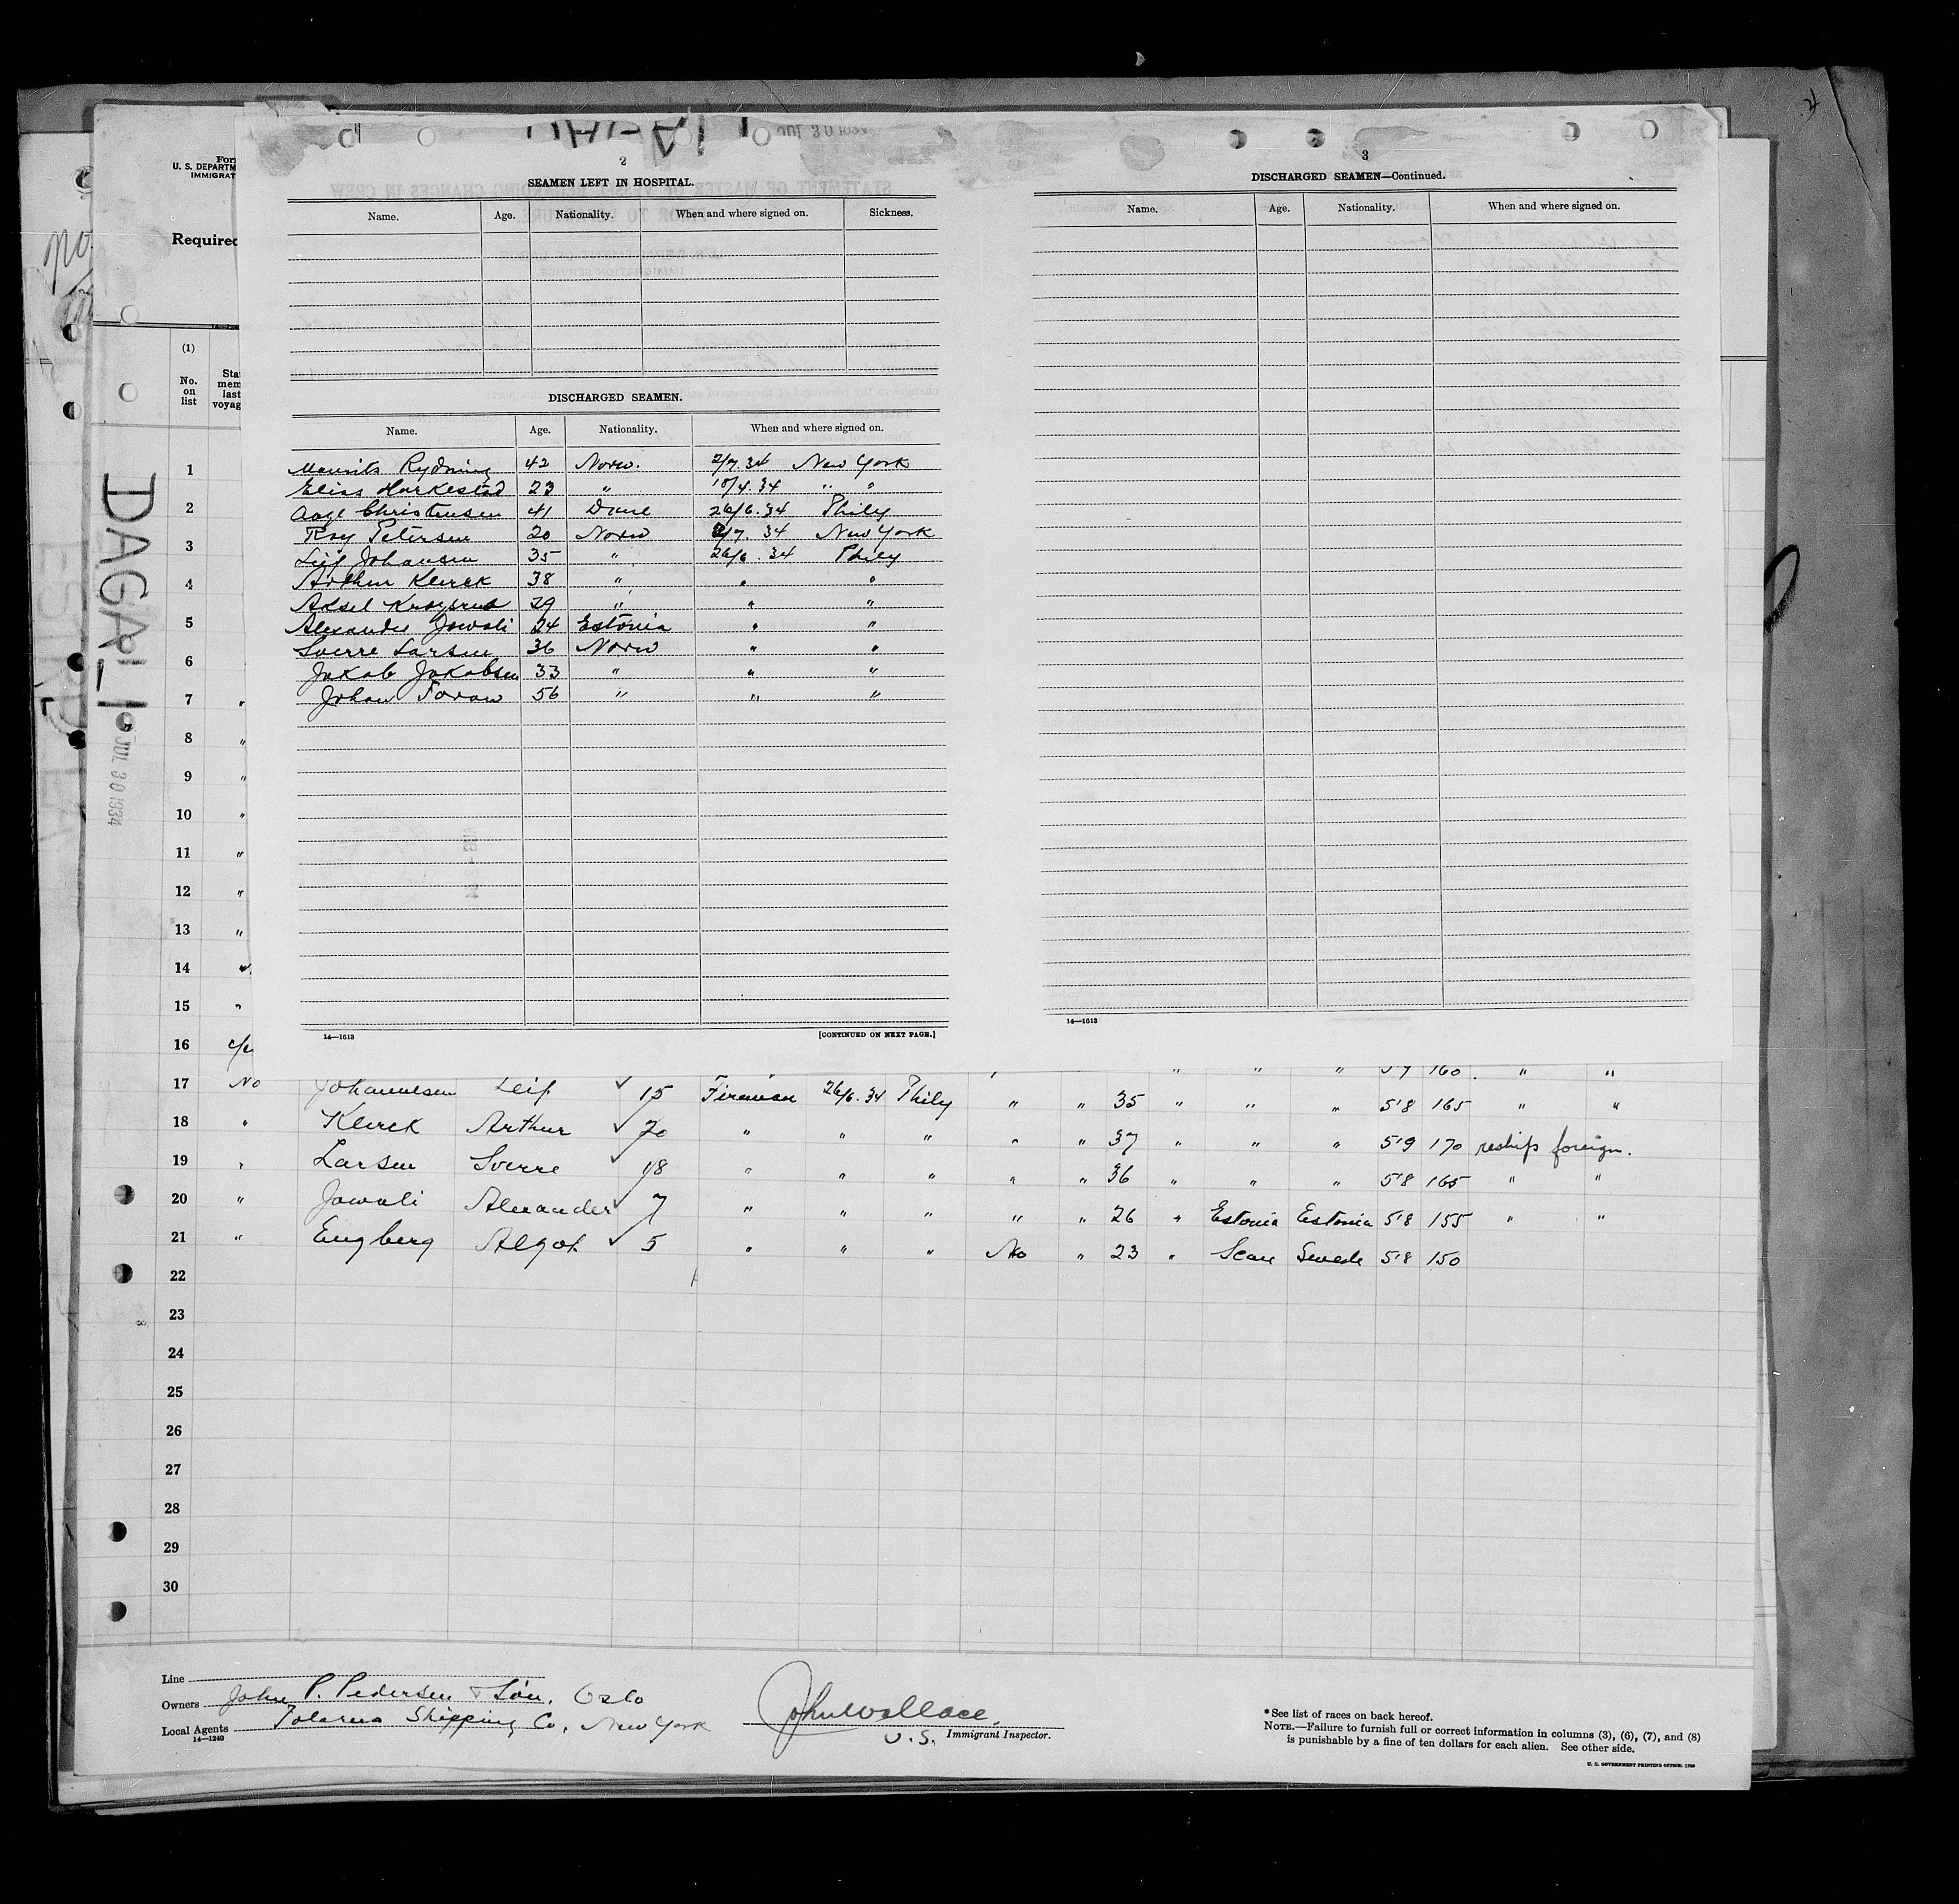 2
SEAMEN LEFT IN HOSPITAL.
Name. Age. Nationality. When and where signed on. Sickness.
DISCHARGED SEAMEN.
Name. Age. Nationality. When and where signed on.
Maurits Rydning 42 Norw. 2/7.34 New York
Elias Harkestad 23 " 10/4.34 " "
Aage Christensen 41 Dane 26/6.34 Phily
Roy Petersen 20 Norw 2/7. 34 New York
Leif Johansen 35 " 26/6. 34 Phily
Arthur Klerck 38 " " "
Aksel 29 " " "
Alexander Jowali 24 Estonia " "
Sverre Larsen 36 Norw " "
Jakob Jakobsen 33 " " "
Johan 56 " " "
14—1613 [CONTINUED ON NEXT PAGE.]
3
DISCHARGED SEAMEN—Continued.
Name. Age. Nationality. When and where signed on.
14—1613
Form
U. S. DEPARTM
IMMIGRAT
Required
(1)
No. on list
Sta mem last voyag
DAGALI
JUL 30 1934
1
2
3
4
5
6
7 "
8 "
9 "
10 "
11 "
12 "
13 "
14
15 "
16
" " " 160. " "
17 No Johannesen Leif ✓ 15 Fireman 26/6.34 Phily " " 35 " " " 5'8 165 " "
18 " Klerck Arthur ✓ 20 " " " " " 37 " " " 5'9 170 reships foreign.
19 " Larsen Sverre ✓ 18 " " " " " 36 " " " 5'8 165 " "
20 " Jowali Alexander ✓ 7 " " " " " 26 " Estonia Estonia 5'8 155 " "
21 " Engberg Algot ✓ 5 " " " No " 23 " Scan Swede 5'8 150
22
23
24
25
26
27
28
29
30
Line
Owners John P. Pedersen & Søn, Oslo
Local Agents Shipping Co, New York
14—1240
John Wallace.
U.S. Immigrant Inspector.
*See list of races on back hereof.
NOTE.—Failure to furnish full or correct information in columns (3), (6), (7), and (8)
is punishable by a fine of ten dollars for each alien. See other side.
U. S. GOVERNMENT PRINTING OFFICE: 1930